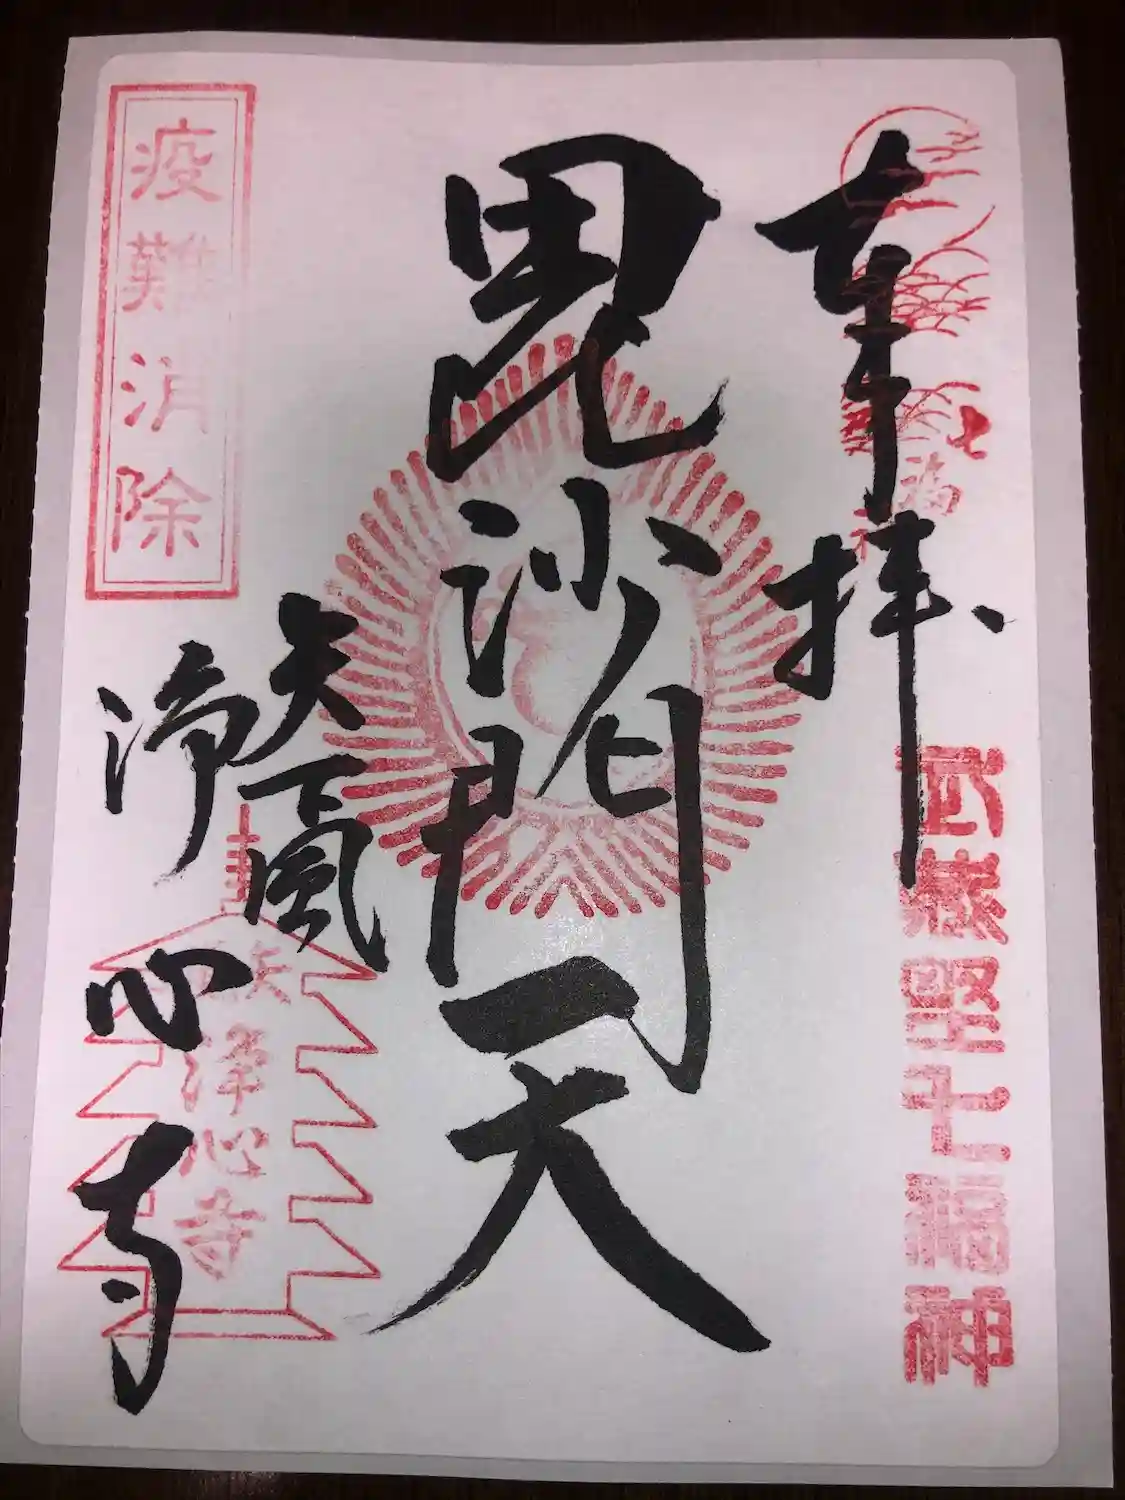 奉拝
武蔵野七福神
毘沙門天
矢颪
浄心寺
矢
浄心寺
疫難消除